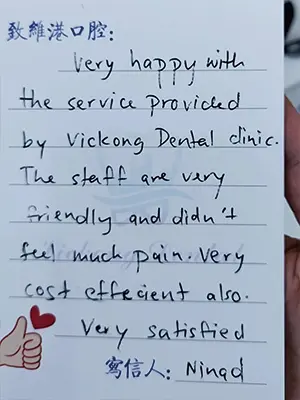 致維港口腔：
Very happy with
the service provided
by Vickong Dental clinic.
The staff are very
friendly and didn't
feel much pain. Very
cost effecient also.
Very satisfied
寫信人： Ninad